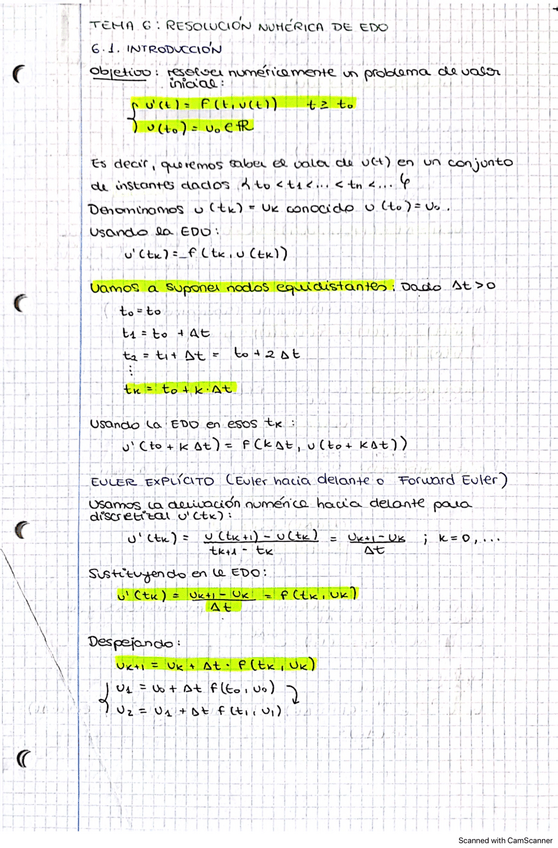 TEMA 6: RESOLUCIÓN NUMÉRICA DE EDO
6.1. INTRODUCCIÓN
Objetivo: resolver numéricamente un problema de valor
inicial:
{ u'(t) = f(t, u(t))   t ≥ t₀
u(t₀) = u₀ ∈ ℝ
Es decir, queremos saber el valor de u(t) en un conjunto
de instantes dados { t₀ < t₁ < ... < tₙ < ... }
Denominamos u(tₖ) = uₖ conocido u(t₀) = u₀.
Usando la EDO:
u'(tₖ) = f(tₖ, u(tₖ))
Vamos a suponer nodos equidistantes. Dado Δt > 0
t₀ = t₀
t₁ = t₀ + Δt
t₂ = t₁ + Δt = t₀ + 2Δt
⋮
tₖ = t₀ + k·Δt
Usando la EDO en esos tₖ:
u'(t₀ + kΔt) = f(kΔt, u(t₀ + kΔt))
EULER EXPLÍCITO (Euler hacia delante o Forward Euler)
Usamos la derivación numérica hacia delante para
discretizar u'(tₖ):
u'(tₖ) = (u(tₖ₊₁) - u(tₖ))/(tₖ₊₁ - tₖ) = (uₖ₊₁ - uₖ)/Δt ; k=0, ...
Sustituyendo en la EDO:
u'(tₖ) = (uₖ₊₁ - uₖ)/Δt = f(tₖ, uₖ)
Despejando:
uₖ₊₁ = uₖ + Δt · f(tₖ, uₖ)
{ u₁ = u₀ + Δt f(t₀, u₀)
u₂ = u₁ + Δt f(t₁, u₁)
Scanned with CamScanner